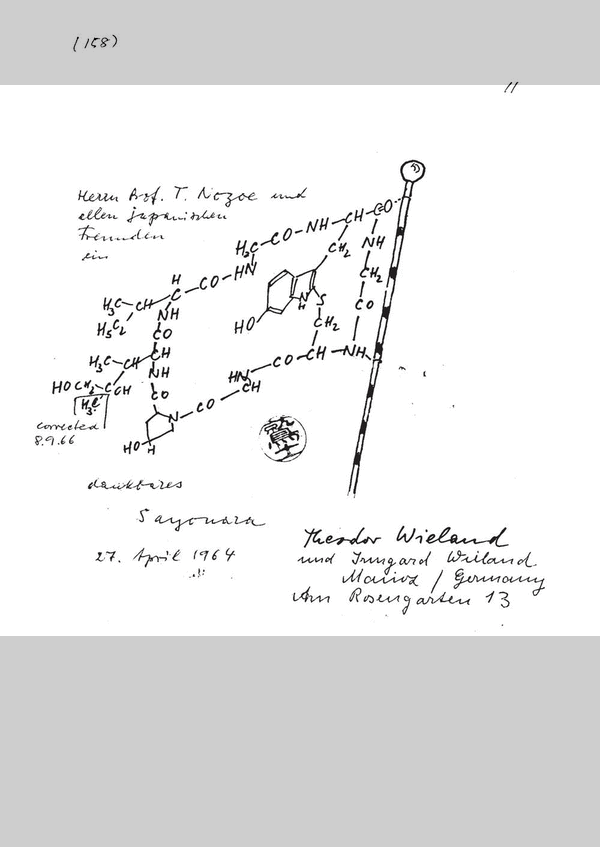 (158)
11
Herrn Prof. T. Nozoe und
allen japanischen
Freunden
ein
H₂C–CO–NH–CH–CO
HN
CH₂
NH
CH₂
CO
H
H₃C–CH–C–CO–HN
H₅C₂
NH
CO
H₃C–CH–CH
NH
CO
HOCH₂–COH
H₃C
corrected
8.9.66
HO
N
H
S
CH₂
HN–CO–CH–NH
CH
N–CO
HO H
dankbares
Sayonara
27. April 1964
Theodor Wieland
und Irmgard Wieland
Mainz / Germany
Am Rosengarten 13